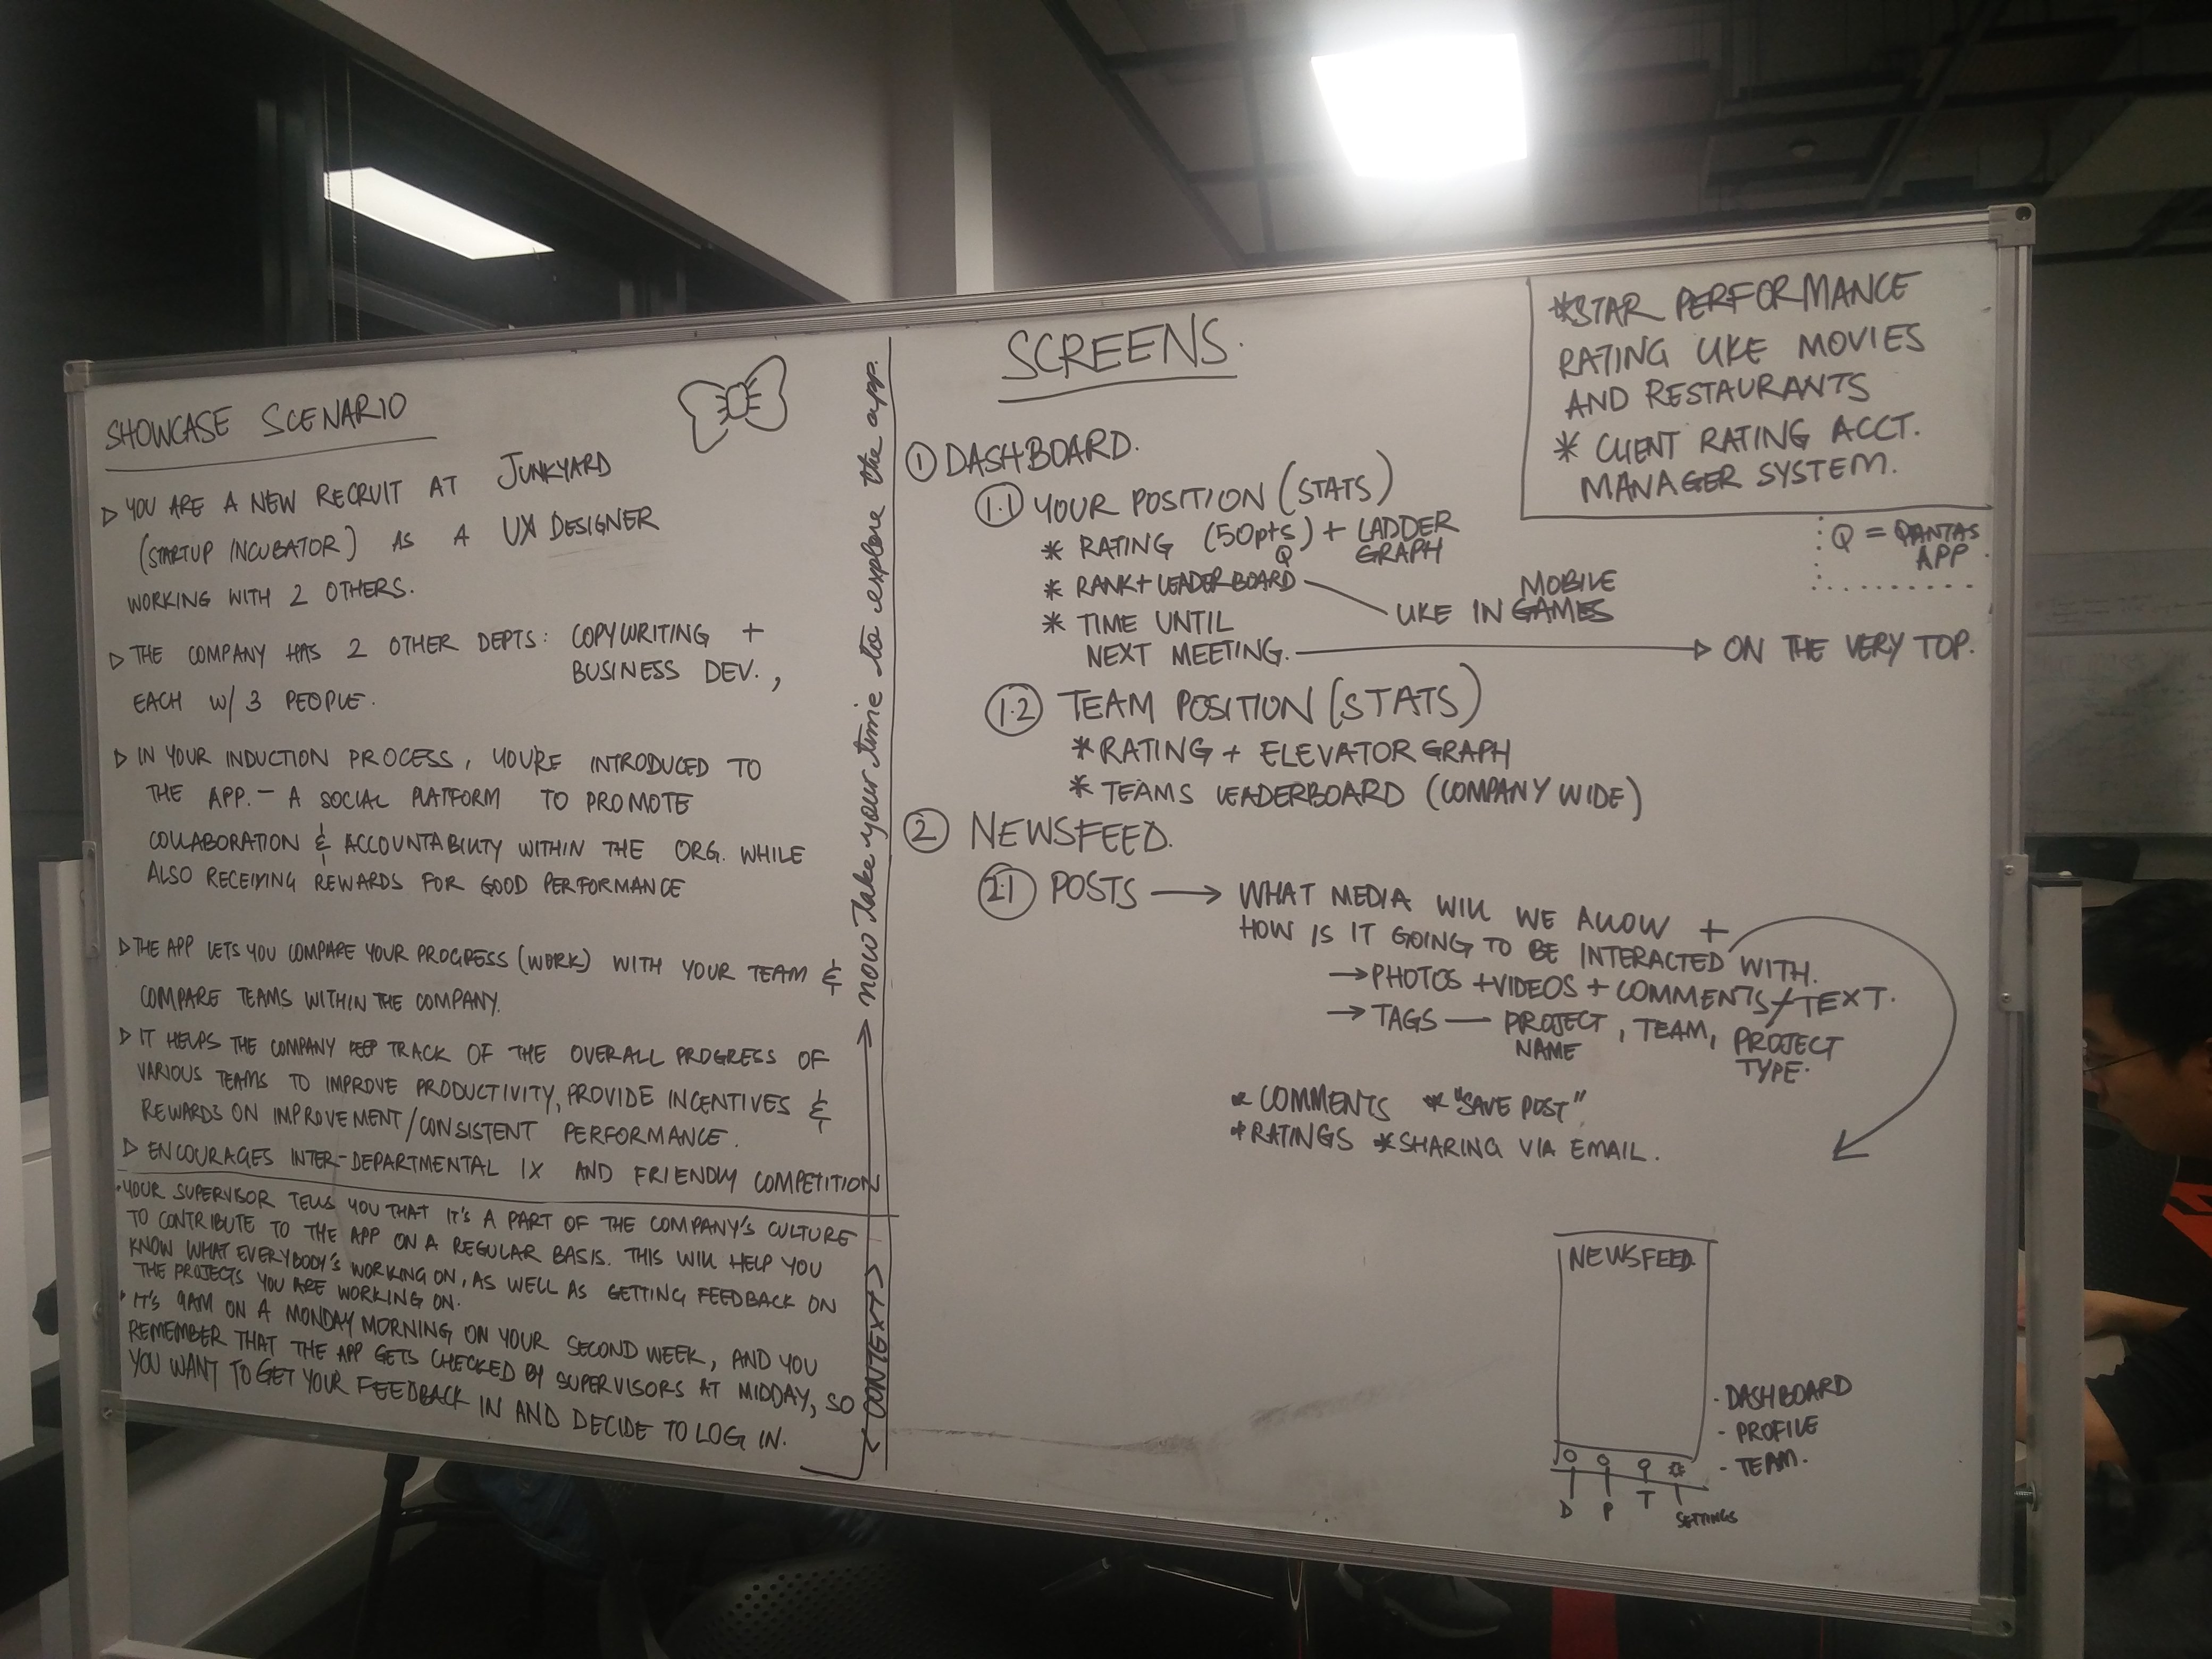 SHOWCASE SCENARIO
▷ YOU ARE A NEW RECRUIT AT JUNKYARD
(STARTUP INCUBATOR) AS A UX DESIGNER
WORKING WITH 2 OTHERS.
▷ THE COMPANY HAS 2 OTHER DEPTS: COPYWRITING +
BUSINESS DEV.,
EACH W/ 3 PEOPLE.
▷ IN YOUR INDUCTION PROCESS, YOU'RE INTRODUCED TO
THE APP. – A SOCIAL PLATFORM TO PROMOTE
COLLABORATION & ACCOUNTABILITY WITHIN THE ORG. WHILE
ALSO RECEIVING REWARDS FOR GOOD PERFORMANCE
▷ THE APP LETS YOU COMPARE YOUR PROGRESS (WORK) WITH YOUR TEAM &
COMPARE TEAMS WITHIN THE COMPANY.
▷ IT HELPS THE COMPANY KEEP TRACK OF THE OVERALL PROGRESS OF
VARIOUS TEAMS TO IMPROVE PRODUCTIVITY, PROVIDE INCENTIVES &
REWARDS ON IMPROVEMENT/CONSISTENT PERFORMANCE.
▷ ENCOURAGES INTER-DEPARTMENTAL IX AND FRIENDLY COMPETITION
• YOUR SUPERVISOR TELLS YOU THAT IT'S A PART OF THE COMPANY'S CULTURE
TO CONTRIBUTE TO THE APP ON A REGULAR BASIS. THIS WILL HELP YOU
KNOW WHAT EVERYBODY'S WORKING ON, AS WELL AS GETTING FEEDBACK ON
THE PROJECTS YOU ARE WORKING ON.
• IT'S 9AM ON A MONDAY MORNING ON YOUR SECOND WEEK, AND YOU
REMEMBER THAT THE APP GETS CHECKED BY SUPERVISORS AT MIDDAY, SO
YOU WANT TO GET YOUR FEEDBACK IN AND DECIDE TO LOG IN.
< CONTEXT >
now take your time to explore the app.
SCREENS.
① DASHBOARD.
1.1 YOUR POSITION (STATS)
* RATING (50pts) + LADDER
Q GRAPH
* RANK + LEADERBOARD
LIKE IN MOBILE
GAMES
* TIME UNTIL
NEXT MEETING. → ON THE VERY TOP.
1.2 TEAM POSITION (STATS)
* RATING + ELEVATOR GRAPH
* TEAMS LEADERBOARD (COMPANY WIDE)
② NEWSFEED.
2.1 POSTS → WHAT MEDIA WILL WE ALLOW +
HOW IS IT GOING TO BE INTERACTED WITH.
→ PHOTOS + VIDEOS + COMMENTS/TEXT.
→ TAGS — PROJECT NAME, TEAM, PROJECT TYPE.
* COMMENTS * "SAVE POST"
* RATINGS * SHARING VIA EMAIL.
*STAR PERFORMANCE
RATING LIKE MOVIES
AND RESTAURANTS
* CLIENT RATING ACCT.
MANAGER SYSTEM.
Q = QANTAS
APP
NEWSFEED
- DASHBOARD
- PROFILE
- TEAM.
D P T SETTINGS